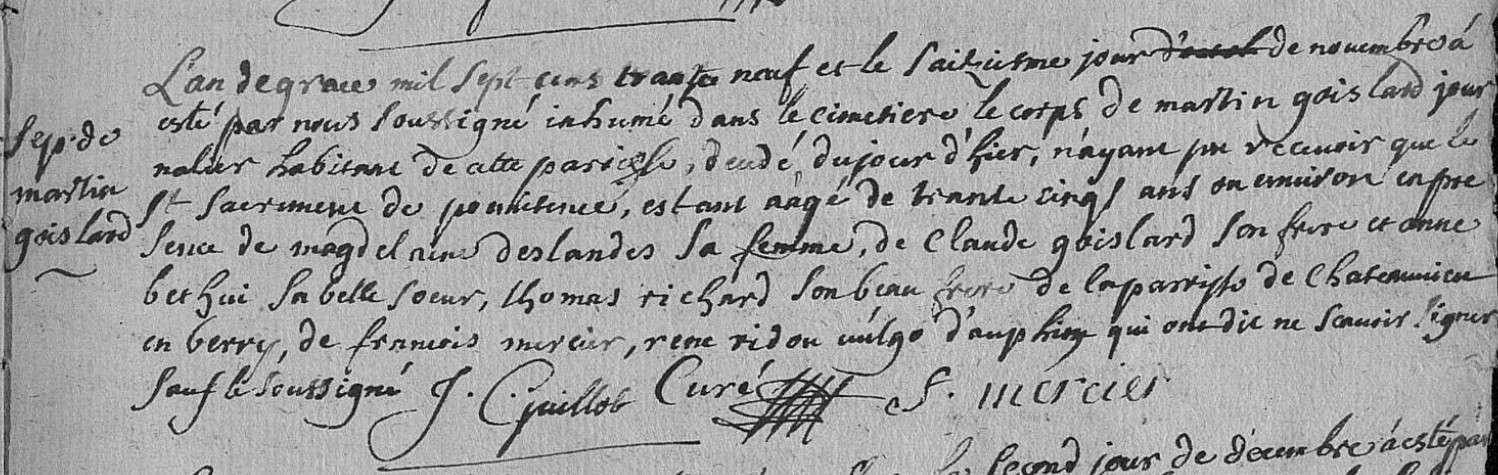 L'an de grace mil sept cens trante neuf et le saiziesme jour d'octob de novembre à
esté par nous soussigné inhumé dans le cimetiere le corps de martin goislard jour
nalier habitant de cette parroisse, décédé du jour d'hier, n'ayant pu recevoir que le
St sacrement de penitence, estant aagé de trante cinqs ans ou environ en pre
sence de magdelaine deslandes sa femme, de Claude goislard son frere et anne
bethui sa belle soeur, thomas richard son beau frere de la parrisse de Chateauvieu
en berry, de francois mercier, rene ridou vulgo d'auphin qui ont dit ne scavoir signer
sauf le soussigné J. C. guillot Curé F. mercier
Sep. de
martin
goislard
second jour de décembre à esté par